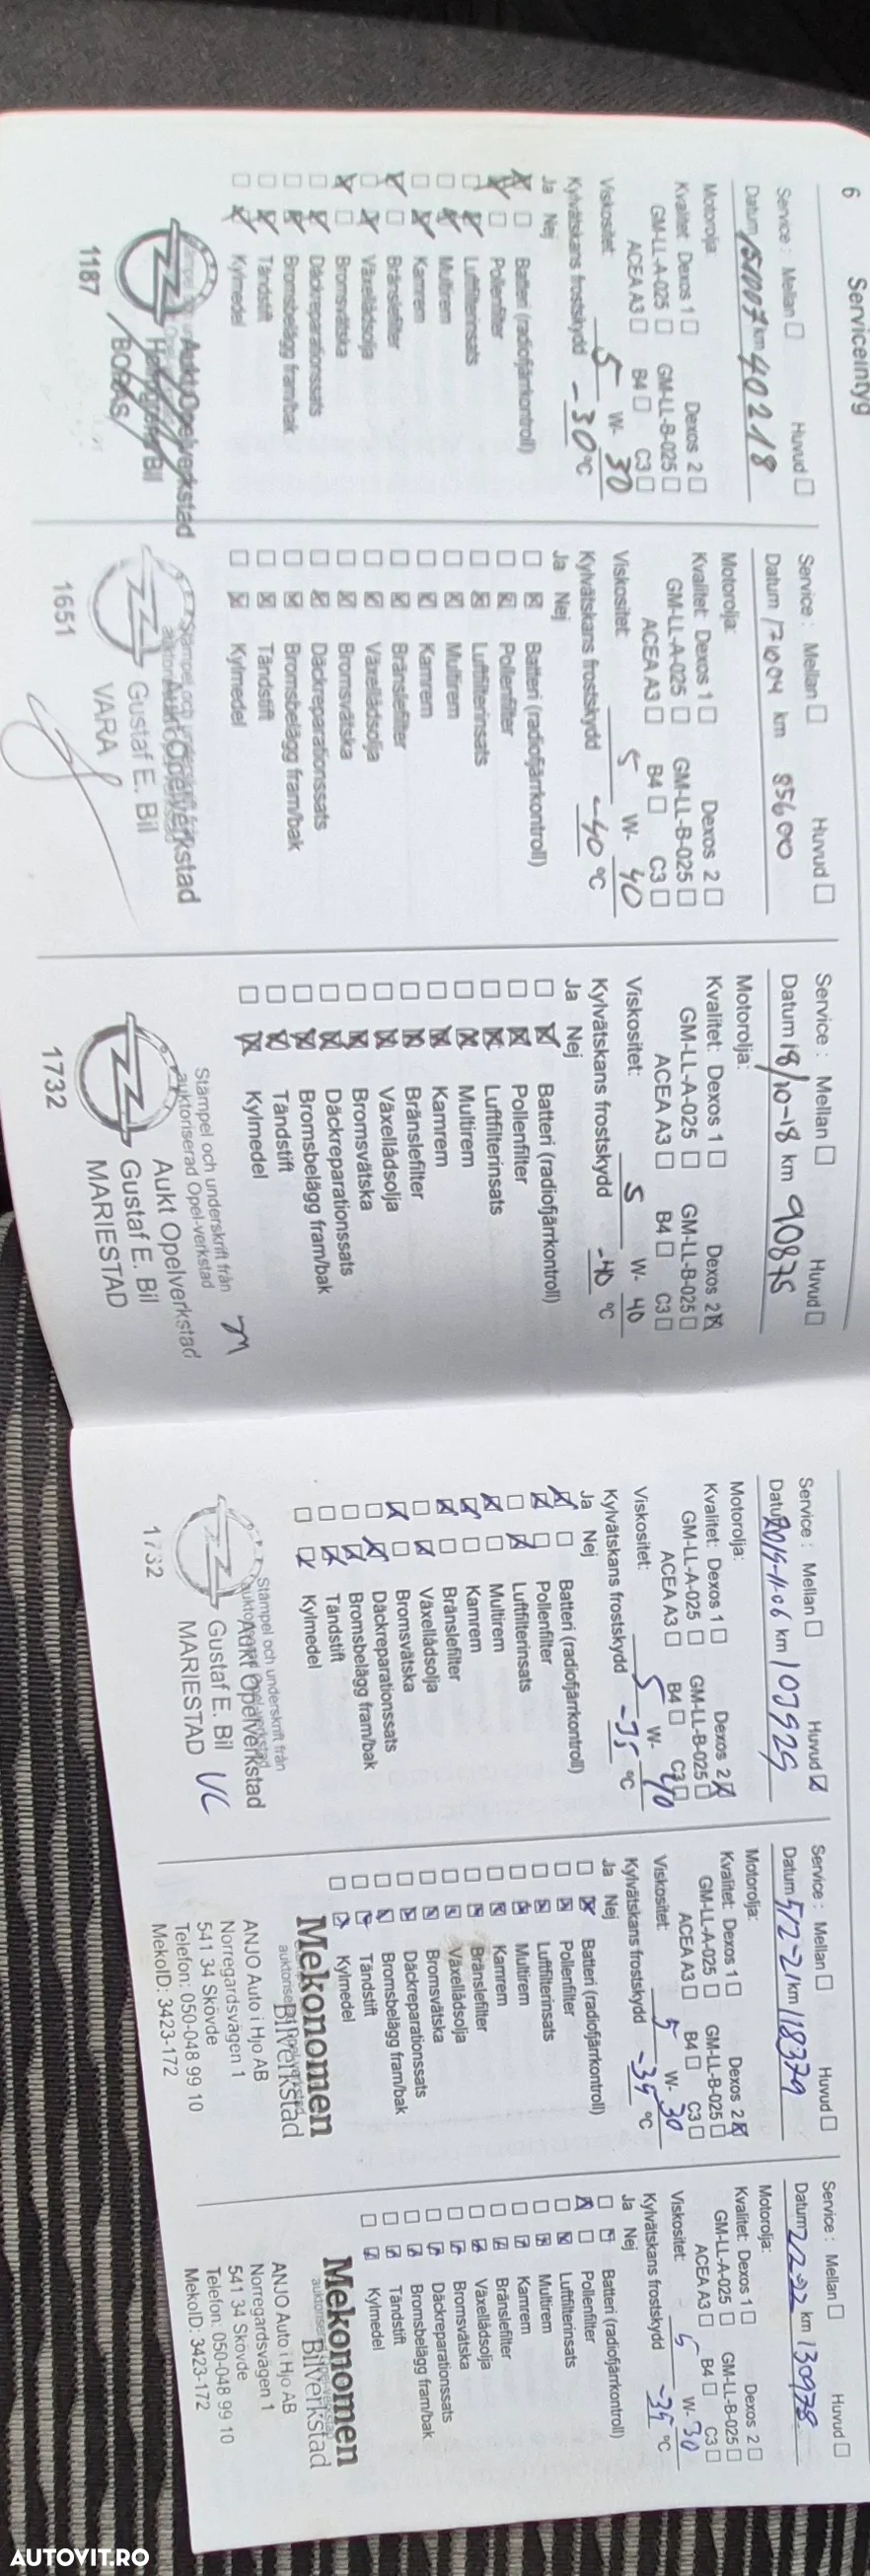 6 Serviceintyg
Service: Mellan Huvud
Datum 151007 km 40218
Motorolja:
Kvalitet: Dexos 1 Dexos 2
GM-LL-A-025 GM-LL-B-025
ACEA A3 B4 C3
Viskositet: 5 W- 30
Kylvätskans frostskydd -30 °C
Ja Nej
Batteri (radiofjärrkontroll)
Pollenfilter
Luftfilterinsats
Multirem
Kamrem
Bränslefilter
Växellådsolja
Bromsvätska
Däckreparationssats
Bromsbelägg fram/bak
Tändstift
Kylmedel
Aukt Opelverkstad
Bil
BORÅS
1187
Service: Mellan Huvud
Datum 171004 km 85600
Motorolja:
Kvalitet: Dexos 1 Dexos 2
GM-LL-A-025 GM-LL-B-025
ACEA A3 B4 C3
Viskositet: 5 W- 40
Kylvätskans frostskydd -40 °C
Ja Nej
Batteri (radiofjärrkontroll)
Pollenfilter
Luftfilterinsats
Multirem
Kamrem
Bränslefilter
Växellådsolja
Bromsvätska
Däckreparationssats
Bromsbelägg fram/bak
Tändstift
Kylmedel
Stämpel och
Aukt Opelverkstad
Gustaf E. Bil
VARA
1651
Service: Mellan Huvud
Datum 18/10-18 km 90875
Motorolja:
Kvalitet: Dexos 1 Dexos 2
GM-LL-A-025 GM-LL-B-025
ACEA A3 B4 C3
Viskositet: 5 W- 40
Kylvätskans frostskydd -40 °C
Ja Nej
Batteri (radiofjärrkontroll)
Pollenfilter
Luftfilterinsats
Multirem
Kamrem
Bränslefilter
Växellådsolja
Bromsvätska
Däckreparationssats
Bromsbelägg fram/bak
Tändstift
Kylmedel
Stämpel och underskrift från
auktoriserad Opel-verkstad
Aukt Opelverkstad
Gustaf E. Bil
MARIESTAD
1732
Service: Mellan Huvud
Datum 2019-11-06 km 103929
Motorolja:
Kvalitet: Dexos 1 Dexos 2
GM-LL-A-025 GM-LL-B-025
ACEA A3 B4 C3
Viskositet: 5 W- 40
Kylvätskans frostskydd -35 °C
Ja Nej
Batteri (radiofjärrkontroll)
Pollenfilter
Luftfilterinsats
Multirem
Kamrem
Bränslefilter
Växellådsolja
Bromsvätska
Däckreparationssats
Bromsbelägg fram/bak
Tändstift
Kylmedel
Stämpel och underskrift från
Aukt Opelverkstad
Gustaf E. Bil
MARIESTAD
1732
Service: Mellan Huvud
Datum 5/2-21 km 118379
Motorolja:
Kvalitet: Dexos 1 Dexos 2
GM-LL-A-025 GM-LL-B-025
ACEA A3 B4 C3
Viskositet: 5 W- 30
Kylvätskans frostskydd -34 °C
Ja Nej
Batteri (radiofjärrkontroll)
Pollenfilter
Luftfilterinsats
Multirem
Kamrem
Bränslefilter
Växellådsolja
Bromsvätska
Däckreparationssats
Bromsbelägg fram/bak
Tändstift
Kylmedel
Mekonomen
Bilverkstad
ANJO Auto i Hjo AB
Norregardsvägen 1
541 34 Skövde
Telefon: 050-048 99 10
MekoID: 3423-172
Service: Mellan Huvud
Datum 2/2-22 km 130978
Motorolja:
Kvalitet: Dexos 1 Dexos 2
GM-LL-A-025 GM-LL-B-025
ACEA A3 B4 C3
Viskositet: 5 W- 30
Kylvätskans frostskydd -34 °C
Ja Nej
Batteri (radiofjärrkontroll)
Pollenfilter
Luftfilterinsats
Multirem
Kamrem
Bränslefilter
Växellådsolja
Bromsvätska
Däckreparationssats
Bromsbelägg fram/bak
Tändstift
Kylmedel
Mekonomen
Bilverkstad
ANJO Auto i Hjo AB
Norregardsvägen 1
541 34 Skövde
Telefon: 050-048 99 10
MekoID: 3423-172
AUTOVIT.RO